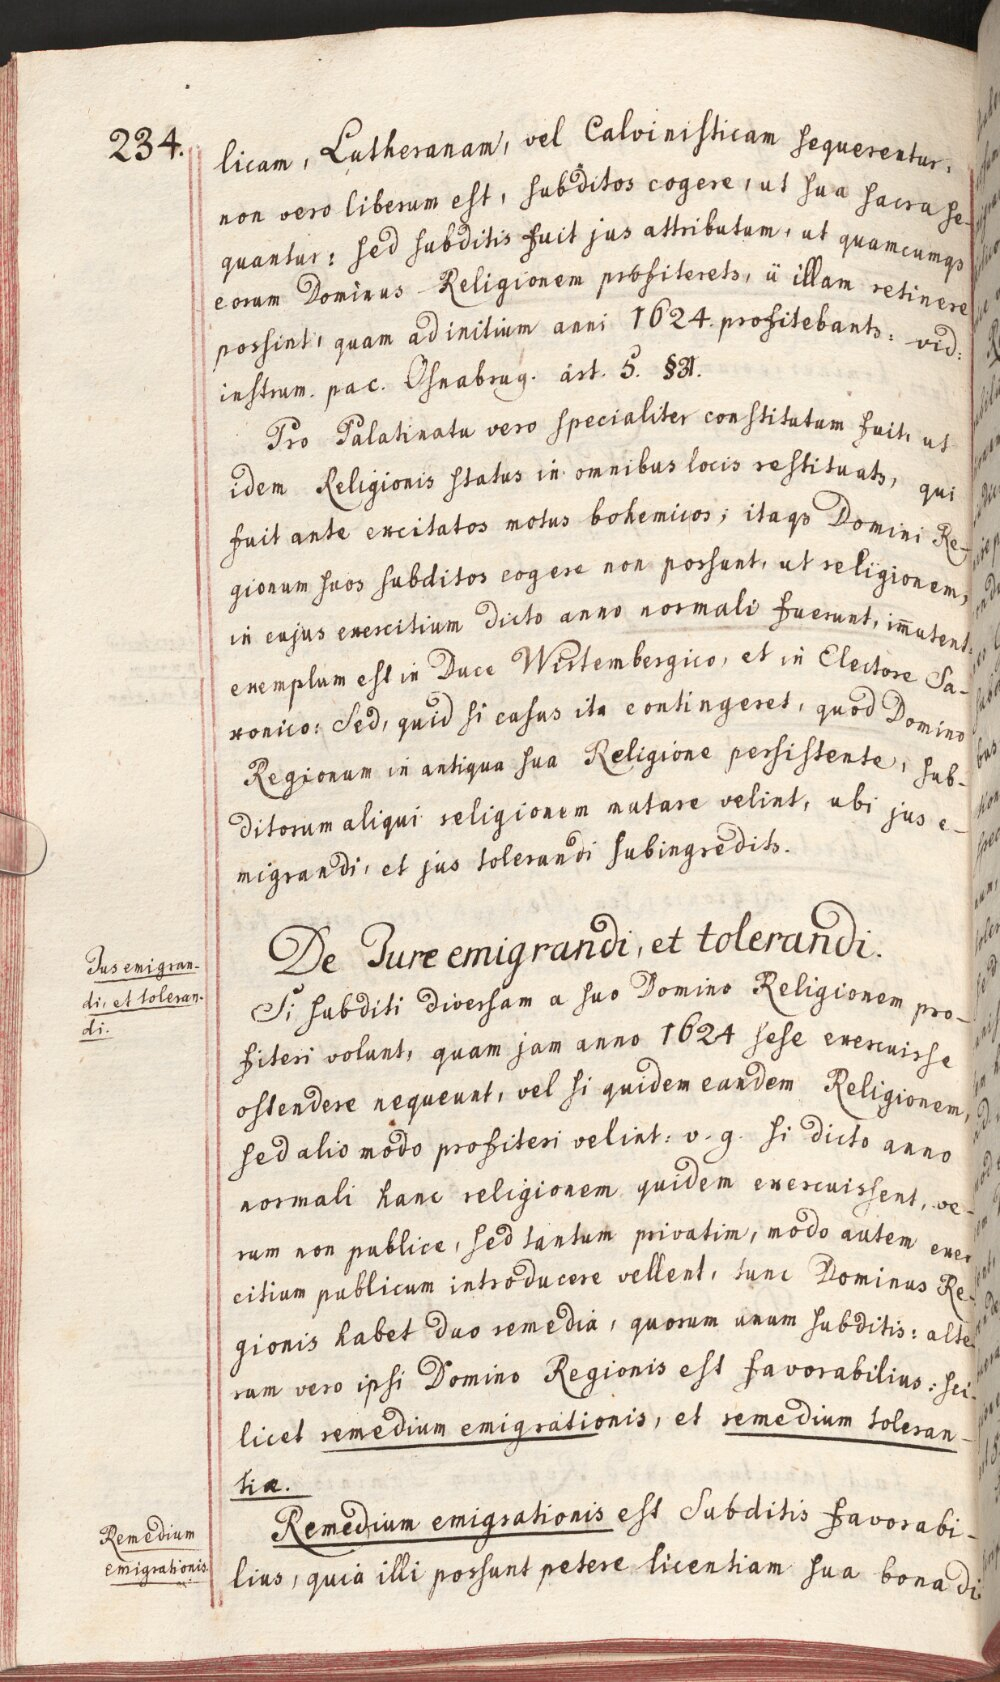 234.
licam, Lutheranam, vel Calvinisticam sequerentur.
non vero liberum est, subditos cogere, ut sua sacra se-
quantur: sed subditis fuit jus attributum, ut quamcumqs
eorum Dominus Religionem profiterets, ii illam retinere
possint, quam ad initium anni 1624. profitebants: vid:
instrum. pac. Osnabrug. art. 5. §31.
Pro Palatinatu vero specialiter constitutum fuit, ut
idem Religionis status in omnibus locis restituats, qui
fuit ante excitatos motus bohemicos; itaqs Domini Re-
gionum suos subditos cogere non possunt, ut religionem,
in cujus exercitium dicto anno normali fuerunt, im̄utent:
exemplum est in Duce Wirtembergico, et in Electore Sa-
xonico: Sed, quid si casus ita contingeret, quod Domino
Regionum in antiqua sua Religione persistente, sub-
ditorum aliqui religionem mutare velint, ubi jus e-
migrandi, et jus tolerandi subingredits.
De Jure emigrandi, et tolerandi.
Jus emigran-
di, et toleran-
di.
Si subditi diversam a suo Domino Religionem pro-
fiteri volunt, quam jam anno 1624 sese exercuisse
ostendere nequeunt, vel si quidem eandem Religionem,
sed alio modo profiteri velint: v. g. si dicto anno
normali hanc religionem quidem exercuissent, ve-
rum non publice, sed tantum privatim, modo autem exer
citium publicum introducere vellent, tunc Dominus Re-
gionis habet duo remedia, quorum unum subditis: alte-
rum vero ipsi Domino Regionis est favorabilius: sci-
licet remedium emigrationis, et remedium toleran-
tiæ.
Remedium
emigrationis
Remedium emigrationis est Subditis favorabi-
lius, quia illi possunt petere licentiam sua bona di